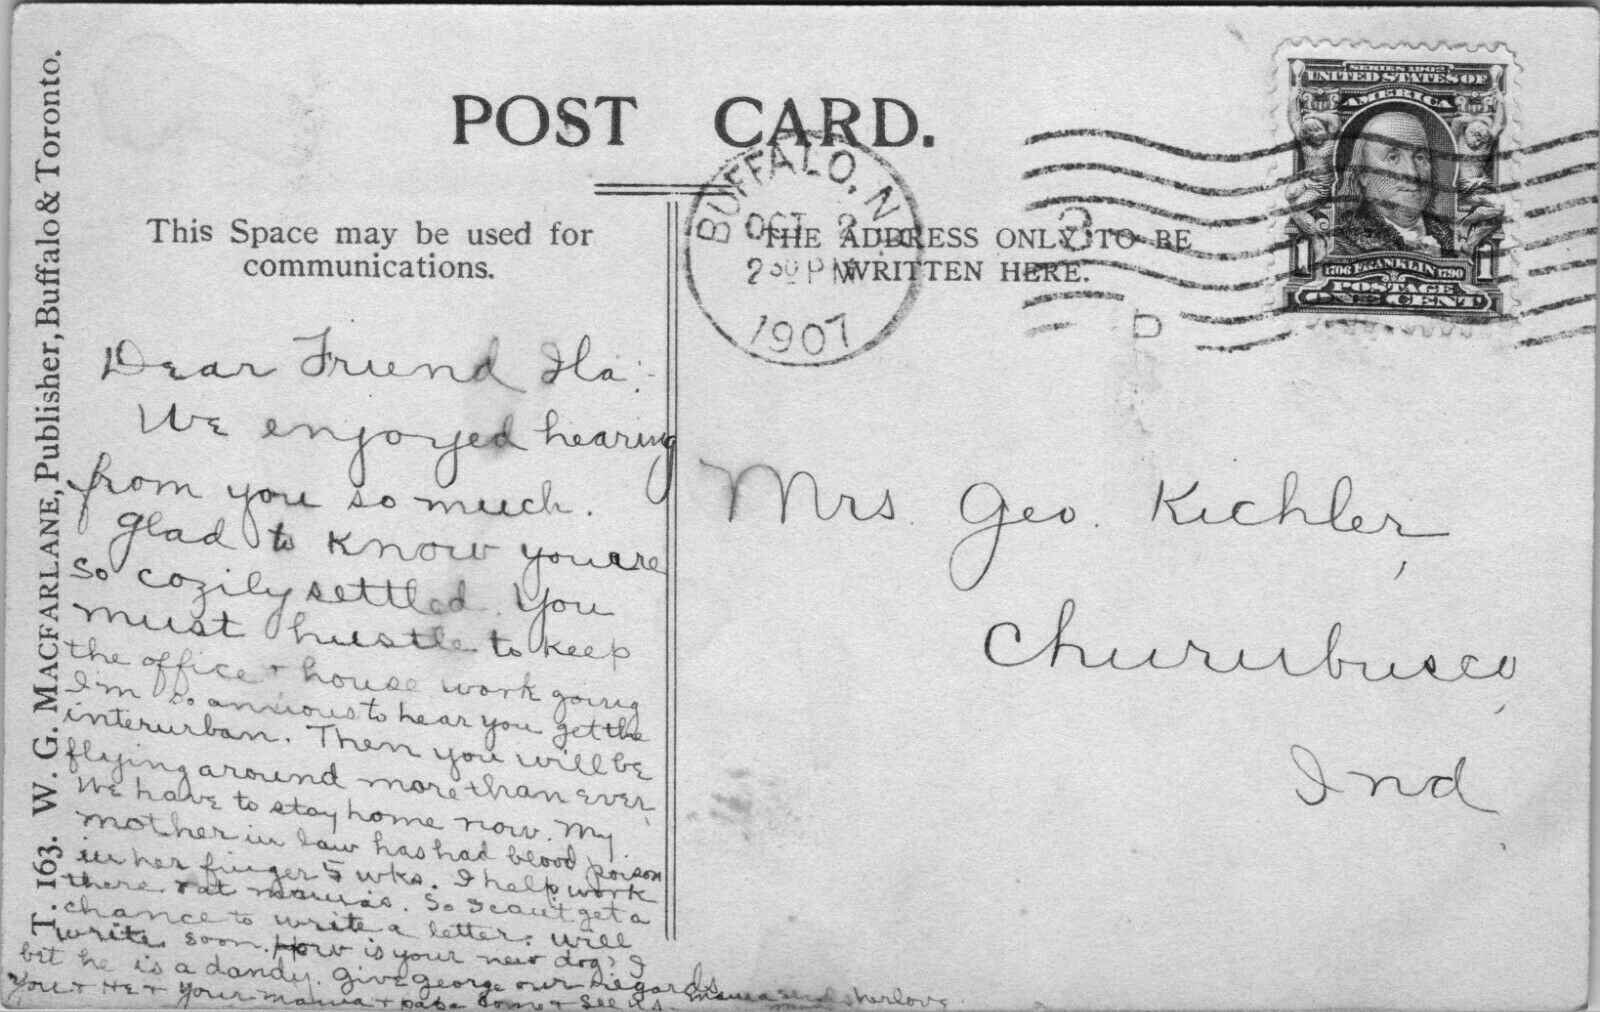 POST CARD.
T. 163. W. G. MACFARLANE, Publisher, Buffalo & Toronto.
This Space may be used for
communications.
THE ADDRESS ONLY TO BE
WRITTEN HERE.
BUFFALO, N
OCT 2
2 30 PM
1907
3
D
SERIES 1902
UNITED STATES OF
AMERICA
1706 FRANKLIN 1790
1 1
POSTAGE
ONE CENT
Dear Friend Ila:-
We enjoyed hearing
from you so much.
Glad to know you are
so cozily settled. You
must hustle to keep
the office + house work going
I'm so anxious to hear you get the
interurban. Then you will be
flying around more than ever,
We have to stay home now. My
mother in law has had blood poison
in her finger 5 wks. I help work
there + at mama's. So I cant get a
chance to write a letter. will
write soon. How is your new dog? I
bet he is a dandy. Give George our regards
You + He + your mama + papa come + see us. Mama sends her love
Mrs. Geo. Kichler,
Churubusco,
Ind.